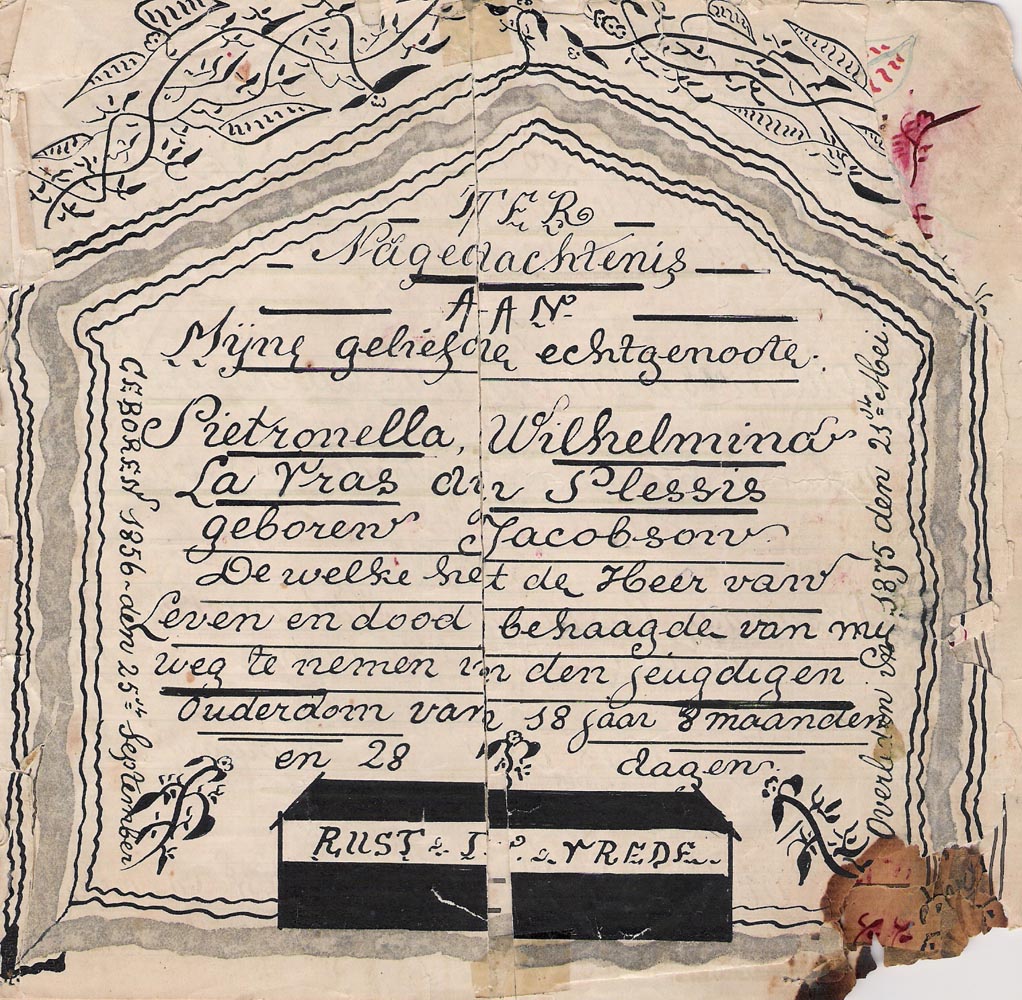 TER
Nagedachtenis
AAN
Mijne geliefde echtgenoote.
Pietronella, Wilhelmina
La Gras du Plessis
geboren Jacobson
De welke het de Heer van
Leven en dood behaagde van my
weg te nemen in den jeugdigen
Ouderdom van 18 jaar 8 maanden
en 28 dagen.
RUST IN VREDE.
GEBOREN 1856 den 25ste September
Overleden in 1875 den 23ste Mei.